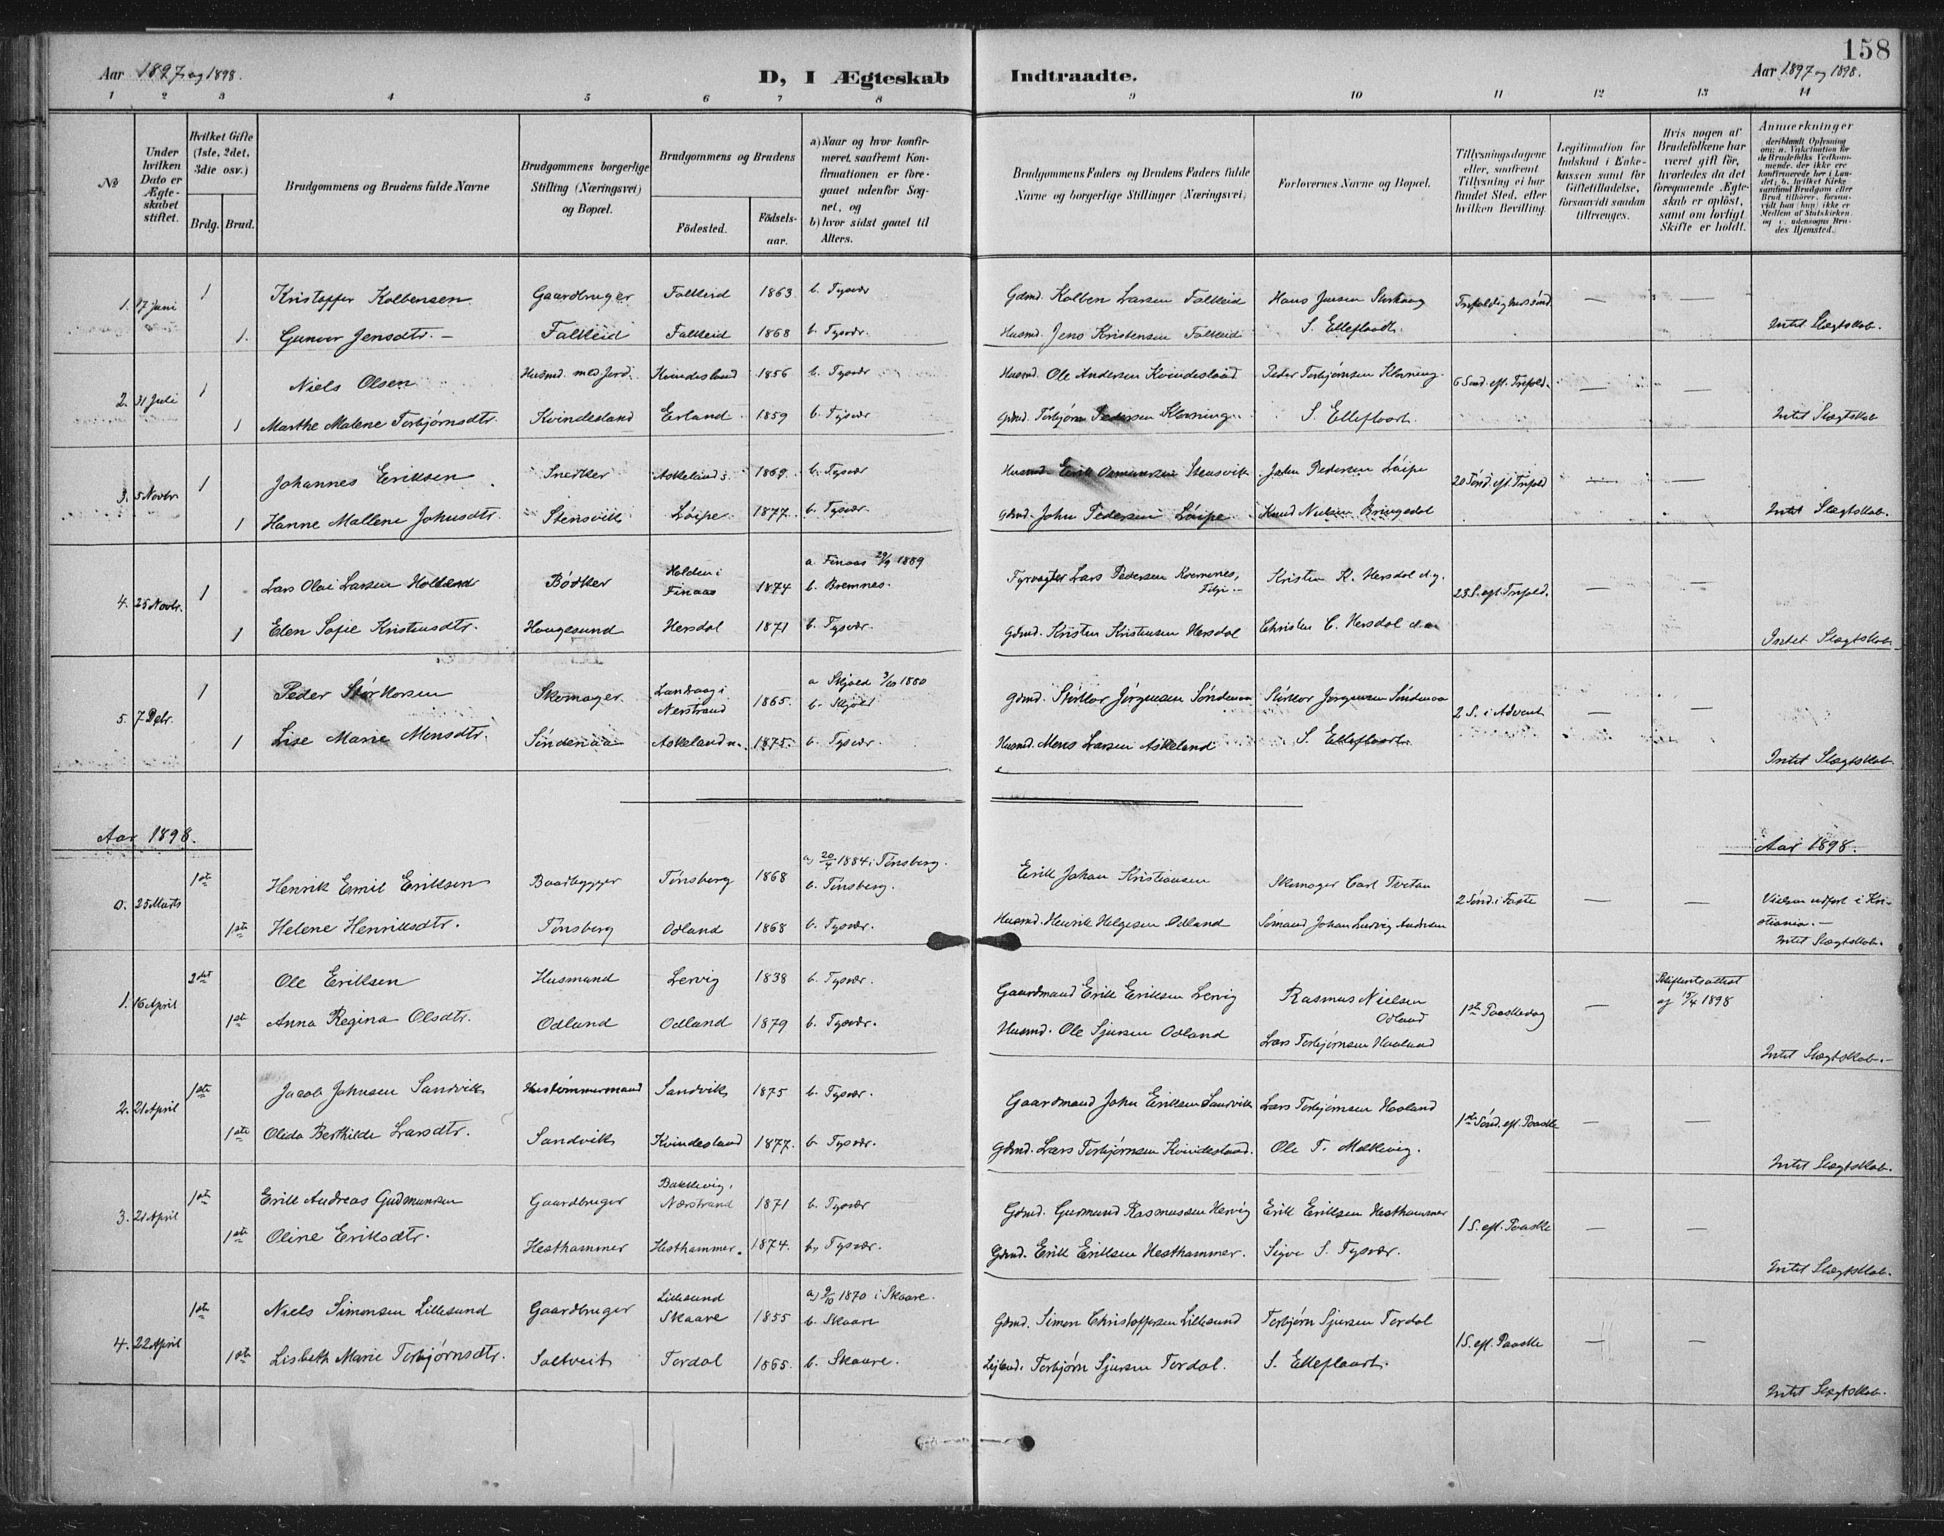 158
Aar 1897 og 1898.
D, I Ægteskab Indtraadte.
Aar 1897 og 1898.
1 2 3 4 5 6 7 8 9 10 11 12 13 14
No
Under hvilken Dato er Ægteskabet stiftet.
Hvilket Gifte (1ste, 2det, 3die osv.)
Brdg. Brud.
Brudgommens og Brudens fulde Navne
Brudgommens borgerlige Stilling (Næringsvei) og Bopæl.
Brudgommens og Brudens
Fødested.
Fødselsaar.
a) Naar og hvor konfirmeret, saafremt Konfirmationen er foregaaet udenfor Sognet, og
b) hvor sidst gaaet til Alters.
Brudgommens Faders og Brudens Faders fulde Navne og borgerlige Stillinger (Næringsvei)
Forlovernes Navne og Bopæl.
Tillysningsdagene eller, saafremt Tillysning ei har fundet Sted, efter hvilken Bevilling.
Legitimation for Indskud i Enkekassen samt for Giftetilladelse, forsaavidt saadan tiltrænges.
Hvis nogen af Brudefolkene har været gift før, hvorledes da det foregaaende Ægteskab er opløst, samt om lovligt Skifte er holdt.
Anmerkninger deriblandt Oplysning om: a. Vakcination for de Brudefolks Vedkommende, der ikke ere konfirmerede her i Landet; b. hvilket Kirkesamfund Brudgom eller Brud tilhører, forsaavidt han (hun) ikke er Medlem af Statskirken, og c. udensogns Brudes Hjemsted.
1. 17 Juni 1 Kristoffer Kolbensen Gaardbruger Falkeid 1863 b. Tysvær Gdmd. Kolben Larsen Falkeid Hans Jensen
1. Gunvor Jensdtr. Falkeid Falkeid 1868 b. Tysvær. Husmd. Jens Kristensen Falkeid S. Elleflaadt. Intet Slægtskab.
2. 31 Juli 1 Niels Olsen Husmd. med Jord. Kvindesland 1856 b. Tysvær Husmd. Ole Andersen Kvindesland Peder Torbjørnsen Kløvning 6 Sønd. eft. Trefold.
1 Marthe Malene Torbjørnsdtr. Kvindesland Erland 1859 b. Tysvær Gdmd. Torbjørn Pedersen Kløvning. S. Elleflaadt. Intet Slægtskab
3. 5 Novbr. 1 Johannes Eriksen Snedker Askeland s. 1869. b. Tysvær Husmd. Erik Osmundsen Stensvik John Pedersen Løipe 20 Sønd. eft. Trefold
1 Hanne Mallene Johnsdtr. Stensvik Løipe 1877. b. Tysvær. Gdmd. John Pedersen Løipe Knud Nielsen Bringedal Intet Slægtskab.
4. 25 Novbr. 1 Lars Olai Larsen Holland Bødker Holden i Finaas 1874 a. Finaas 29/9 1889 b. Bremnes. Fyrvogter Lars Pedersen Kvernenes, Fitje Kristen K. Hersdal d.y. 23 S. eft. Trefold.
1 Elen Sofie Kristensdtr. Haugesund Hersdal 1871 b. Tysvær. Gdmd. Kristen Kristensen Hersdal Christen C. Hersdal Intet Slægtskab.
5. 7 Debr. 1 Peder Størkorsen Skomager Landraag i Nerstrand 1865. a Skjold 3/10 1880 b. Skjold Gdmd. Størkor Jørgensen Søndenaa Størkor Jørgensen Søndenaa 2 S. i Advent
1 Lise Marie Monsdtr. Søndenaa Askeland n. 1875. b. Tysvær Husmd. Mons Larsen Askeland S. Elleflaadt. Intet Slægtskab.
Aar 1898. Aar 1898.
0. 25 Marts 1ste Henrik Emil Eriksen Baadbygger Tønsberg 1868 a) 20/4 1884 i Tønsberg. b. Tønsberg. Erik Johan Kristiansen Skomager Carl Tvetan 2 Sønd. i Faste Vielsen udført i Kristiania.
1ste Helene Henriksdtr. Tønsberg Odland 1868 b. Tysvær. Husmd. Henrik Helgesen Odland Sømand Johan Ludvig Andersen Intet Slægtskab.
1. 16 April Ole Eriksen Husmand Lervig 1838 b. Tysvær. Gaardmand Erik Eriksen Lervig Rasmus Nielsen Odland 1ste Paaskedag Skifteretsattest af 15/4 1898
1ste Anna Regina Olsdtr. Odland Odland 1879 b. Tysvær. Husmd. Ole Sjursen Odland Lars Torbjørnsen Haaland Intet Slægtskab.
2. 21 April 1ste Jacob Johnsen Sandvik Hustømmermand Sandvik 1875 b. Tysvær. Gaardmand John Eriksen Sandvik Lars Torbjørnsen Haaland 1ste Sønd. eft. Paaske
1ste Oleda Berthilde Larsdtr. Sandvik Kvindesland 1877. b. Tysvær. Gdmd. Lars Torbjørnsen Kvindesland. Ole T. Malkevig. Intet Slægtskab.
3. 21 April 1ste Erik Andreas Gudmunsen Gaardbruger Bakkevig, Nærstrand 1871 b. Tysvær Gdmd. Gudmund Rasmussen Hervig Erik Eriksen Hesthammer 1 S. eft. Paaske
1ste Oline Eriksdtr. Hesthammer Hesthammer. 1874. b, Tysvær. Gdmd. Erik Eriksen Hesthammer. Sigve S. Tysvær. Intet Slægtskab.
4. 22 April 1ste Niels Simonsen Lillesund Gaardbruger Lillesund Skaare 1855 a) 9/10 1870 i Skaare. b. Skaare Gdmd. Simon Christoffersen Lillesund Torbjørn Sjursen Tordal 1 S. eft. Paaske
1ste Lisbeth Marie Torbjørnsdtr. Saltveit Tordal 1865. b. Skaare. Leiland. Torbjørn Sjursen Tordal. S. Elleflaadt. Intet Slægtskab.